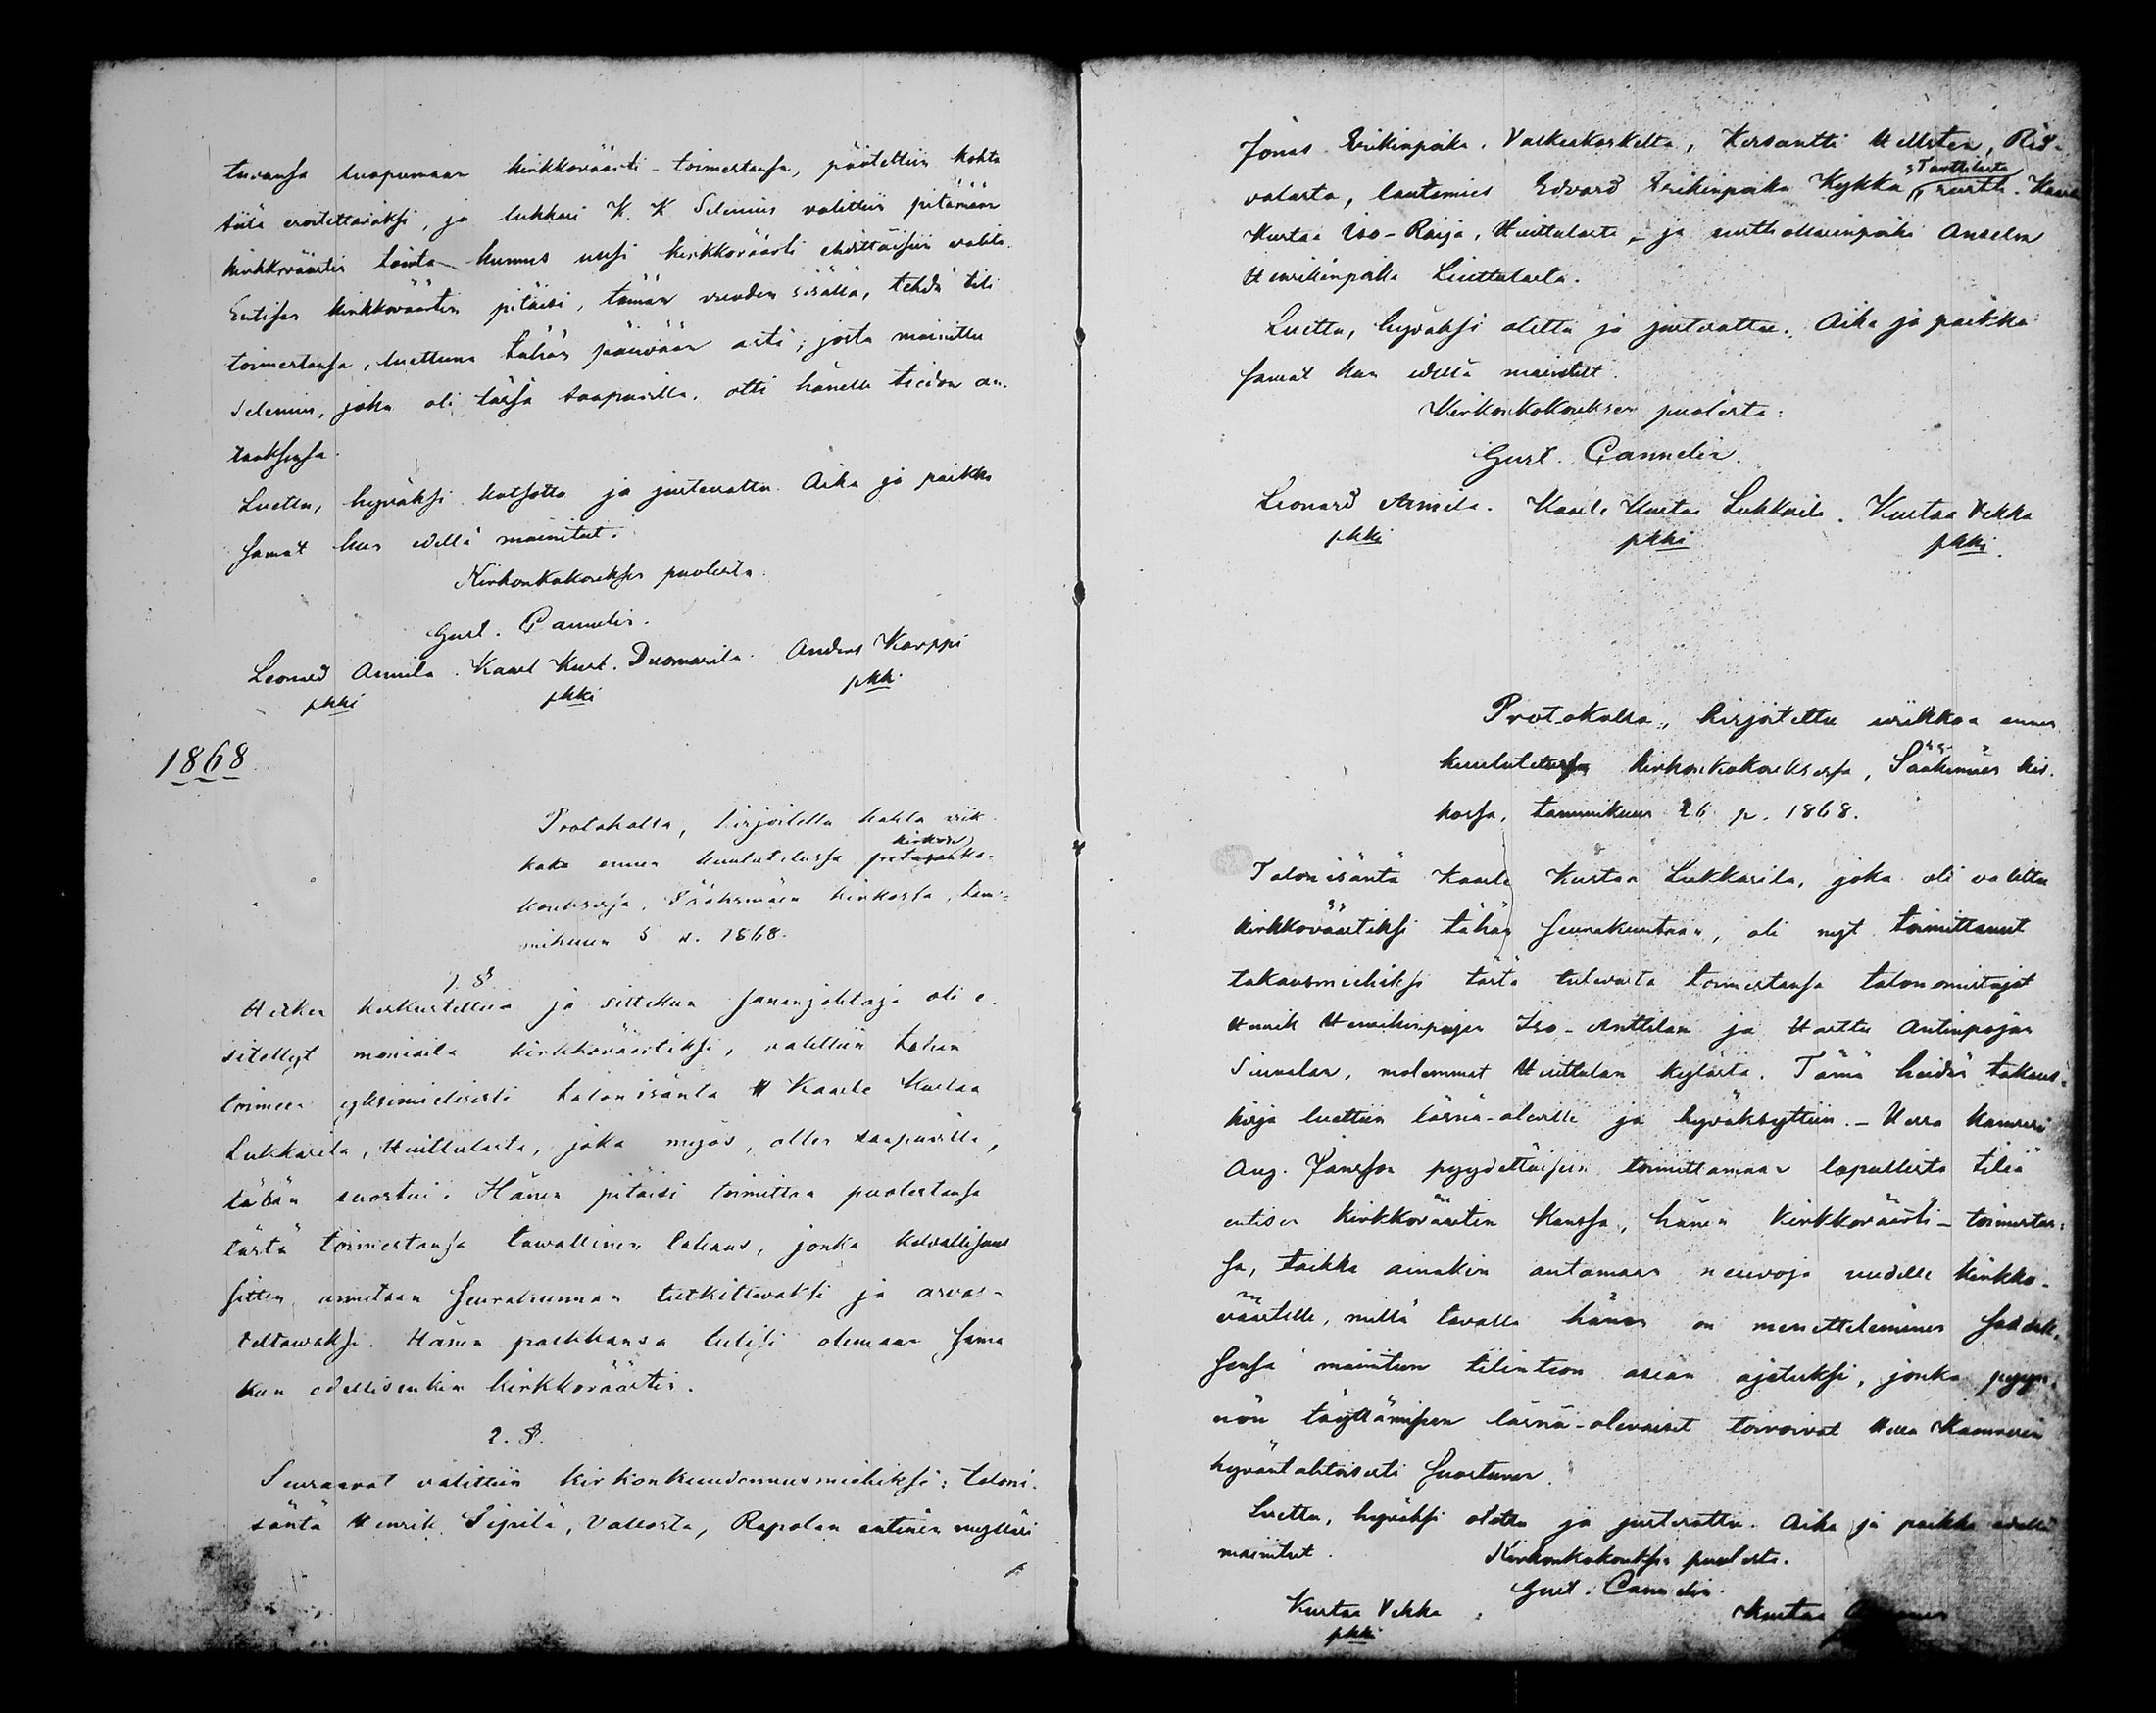 tuvansa luopumaan kirkkoväärti-toimestansa, päätettiin kohta
siitä eroitettavaksi, ja lukkari K. K. Selenius valittiin pitämään
kirkkoväärtin tointa kunnes uusi kirkkoväärti ehdittäisiin valita.
Entisen kirkkoväärtin pitäisi, tämän vuoden sisällä, tehdä tili
toimestansa, luettuna tähän päivään asti; josta mainittu
Selenius, joka oli tässä saapuvilla, otti hänelle tiedon an-
taaksensa.
Luettu, hyväksi katsottu ja justerattu. Aika ja paikka
samat kun edellä mainitut.
Kirkonkokouksen puolesta.
Gust. Cannelin.
Leonard Annila. Kaarl Kust. Duomarila. Anders Karppi
pkki pkki pkki
1868
Protokolla, kirjoitettu kahta viik
koa ennen kuulutetussa kirkon
kouksessa, Sääksmäen kirkossa, tam-
mikuun 5 p. 1868.
1. §
Asiasta keskusteltiin ja sittekun puheenjohtaja oli e-
sitellyt moniaita kirkkoväärtiksi, valittiin tähän
toimeen yksimielisesti talon isäntä Kaarle Kustaa
Lukkarila, Huittulasta, joka myös, ollen saapuvilla,
tähän suostui. Hänen pitäisi toimittaa puolestansa
tästä toimestansa tawallinen takaus, jonka kelvallisuus
sitten annetaan seurakunnan tutkittavaksi ja arvos-
teltawaksi. Hänen palkkansa tulisi olemaan sama
kun edellisenkin kirkkoväärtin.
2. §.
Seuraavat valittiin kirkonkuudennusmiehiksi: taloni-
säntä Henrik Sipilä, Vallosta, Rapolan entinen mylläri
Jonas Erikinpoika, Valkeakoskelta, Kersantti Hellsten, Rit-
valasta, lautamies Edvard Erikinpoika Kykkä Tarttilasta Kaarle
Kustaa Iso-Raija, Huittulasta, ja Anselm
Henrikinpoika Liuttulasta.
Luettu, hyväksi otettu ja justerattu. Aika ja paikka
samat kun edellä mainitut.
Kirkonkokouksen puolesta:
Gust. Cannelin.
Leonard Annila. Kaarle Kustaa Lukkarila. Kustaa Vekka
pkki pkki pkki.
Protokolla, kirjoitettu wiikkoa ennen
kuulutetussa kirkonkokouksessa, Sääksmäen kir-
kossa, tammikuun 26 p. 1868.
Talonisäntä Kaarle Kustaa Lukkarila, joka oli valittu
kirkkoväärtiksi tähän seurakuntaan, oli nyt toimittanut
takausmiehiksi tästä tulevasta toimestansa talonomistajat
Henrik Henrikinpojan Iso-Anttilan ja Mattu Antinpojan
Siuvalan, molemmat Huittulan kylästä. Tämä heidän takaus-
kirja luettiin läsnä-oleville ja hyväksyttiin. – Herra kamreri
Aug. Jansson pyydettäisiin toimittamaan lopullista tiliä
entisen kirkkoväärtin kanssa, hänen kirkkoväärti-toimestan-
sa, taikka ainakin antamaan neuvoja uudelle kirkko-
väärtille, millä tavalla hänen on menetteleminen saadak-
sensa mainitun tilinteon asian ajetuksi, jonka pyyn-
nön täyttämiseen läsnä-olevaiset toivoivat Herra Kamrerin
hyväntahtoisesti suostuvan.
Luettu, hyväksi otettu ja justerattu. Aika ja paikka edellä
mainitut. Kirkonkokouksen puolesta.
Gust. Cannelin.
Kustaa Vekka Kustaa
pkki